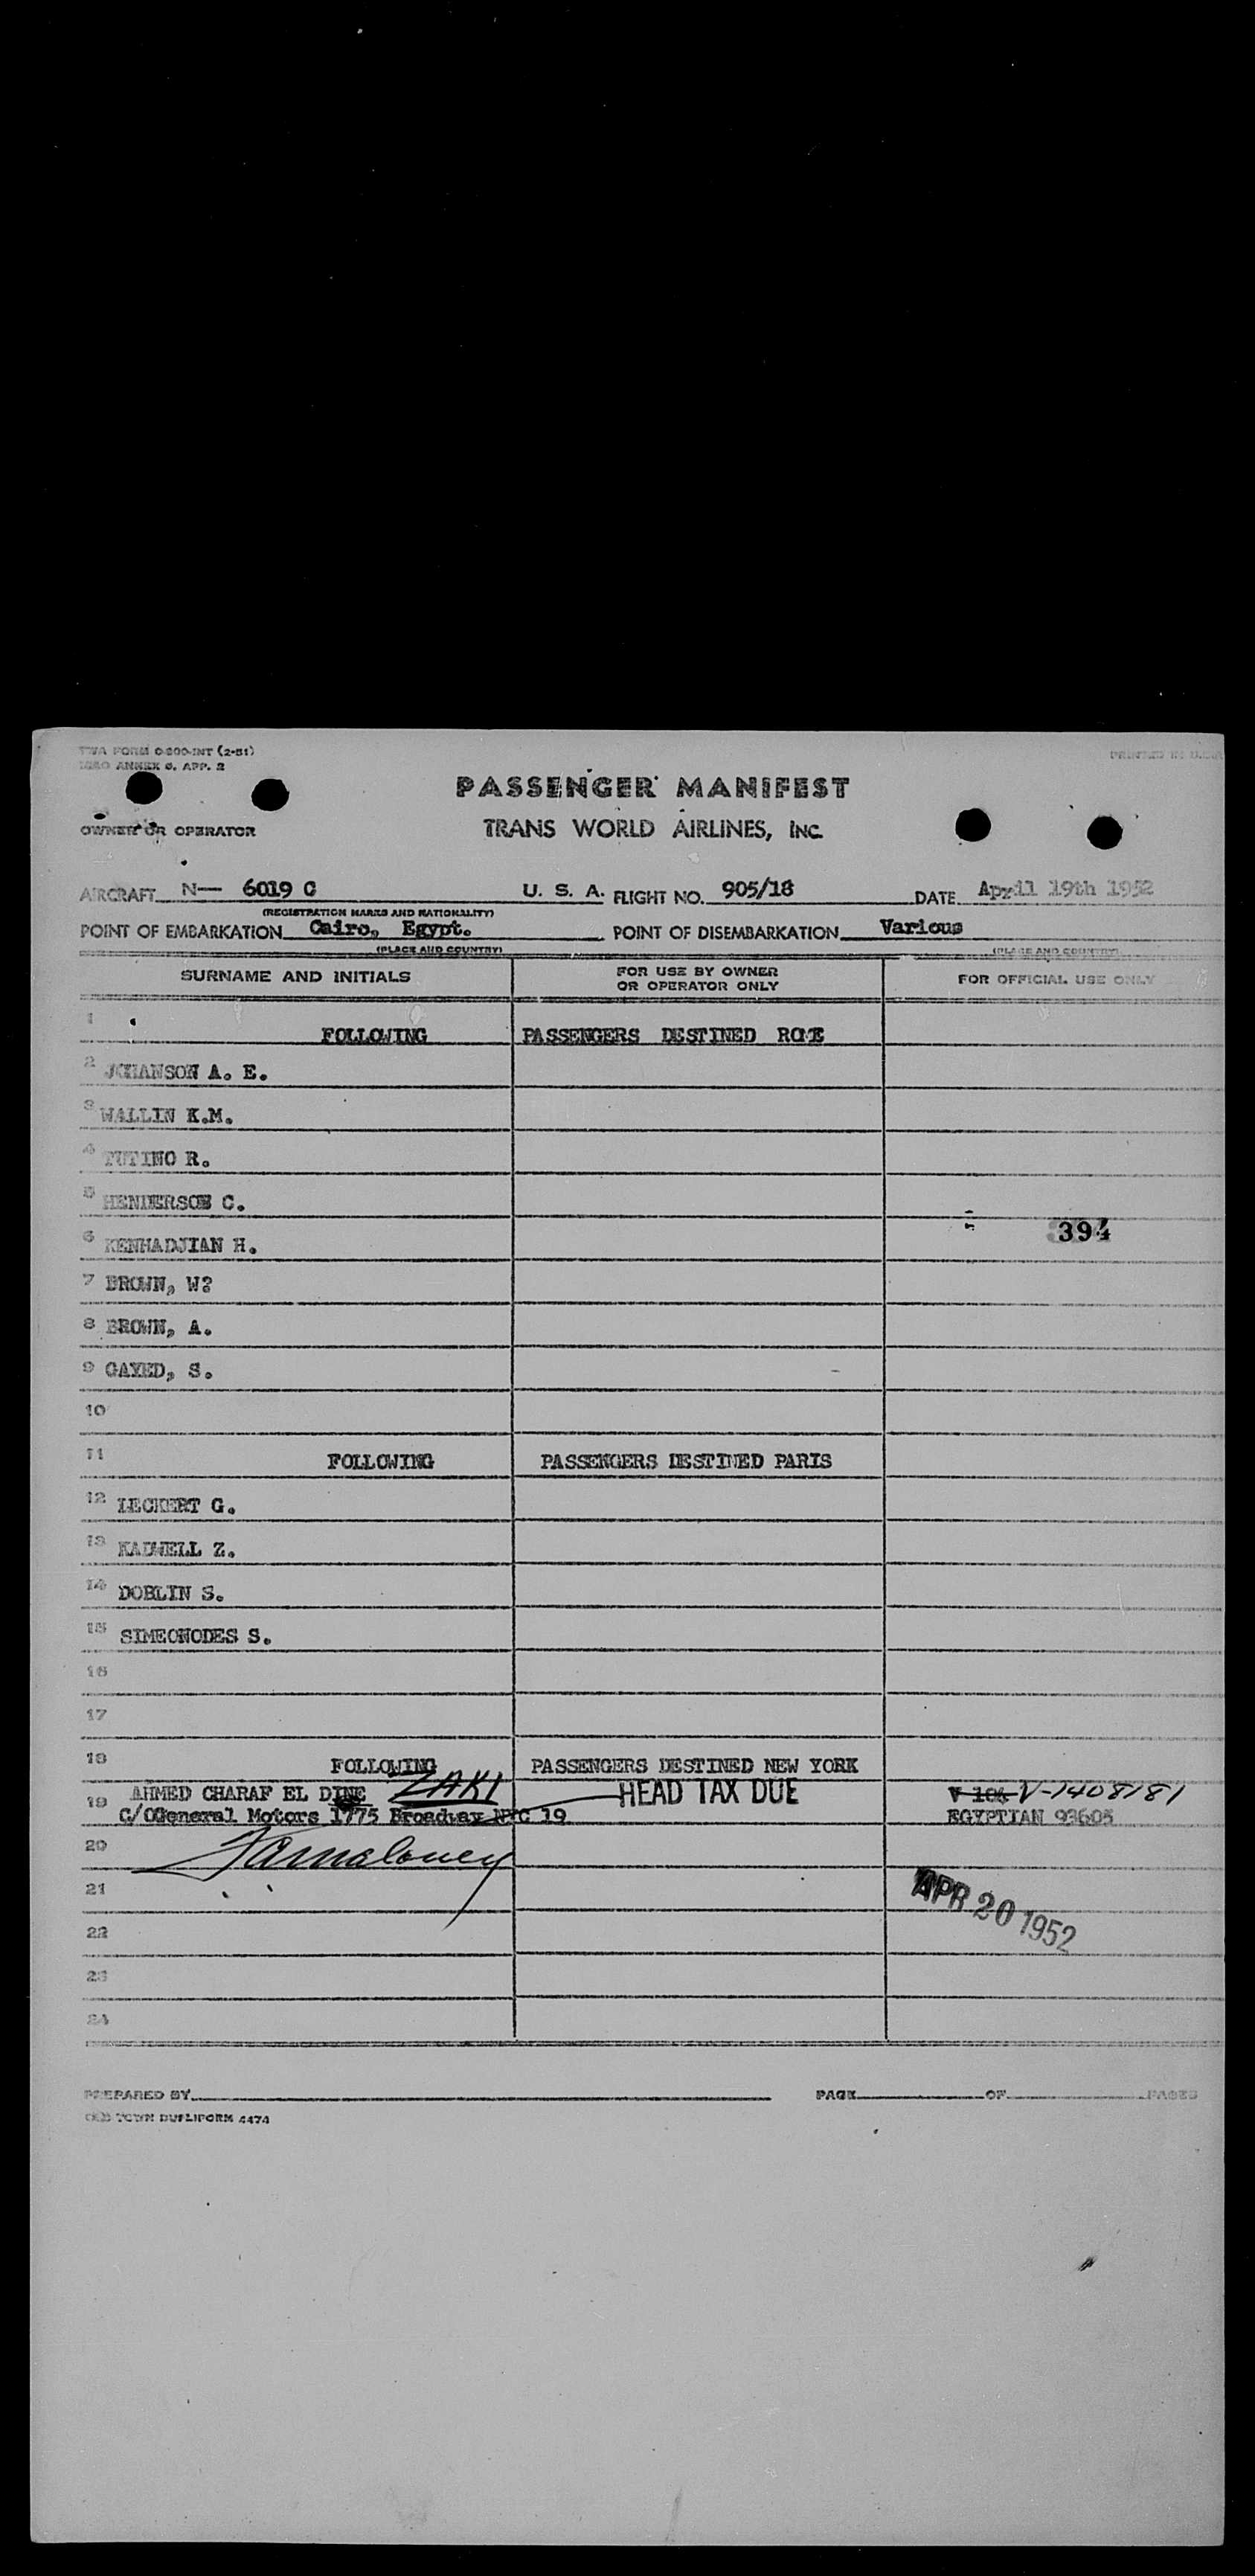 TWA FORM O-800-INT (2-51)
ICAO ANNEX 9. APP. 2
PRINTED IN U.S.A.
PASSENGER MANIFEST
OWNER OR OPERATOR
TRANS WORLD AIRLINES, INC.
AIRCRAFT N— 6019 C U. S. A. FLIGHT NO. 905/18 DATE April 19th 1952
(REGISTRATION MARKS AND NATIONALITY)
POINT OF EMBARKATION Cairo, Egypt. POINT OF DISEMBARKATION Various
(PLACE AND COUNTRY) (PLACE AND COUNTRY)
SURNAME AND INITIALS FOR USE BY OWNER OR OPERATOR ONLY FOR OFFICIAL USE ONLY
1 FOLLOWING PASSENGERS DESTINED ROME
2 JOHANSON A. E.
3 WALLIN K.M.
4 TUTINO R.
5 HENDERSON C.
394
6 KENHADJIAN H.
7 BROWN, W?
8 BROWN, A.
9 GAYED, S.
10
11 FOLLOWING PASSENGERS DESTINED PARIS
12 LECKERT G.
13 KADWELL Z.
14 DOBLIN S.
15 SIMEONODES S.
16
17
18 FOLLOWING PASSENGERS DESTINED NEW YORK
19 AHMED CHARAF EL DINE ZAKI HEAD TAX DUE V-1408181
C/OGeneral Motors 1775 Broadway NYC 19 EGYPTIAN 93605
20
21
APR 20 1952
22
23
24
PREPARED BY PAGE OF PAGES
OLD TOWN DUPLIFORM 4474